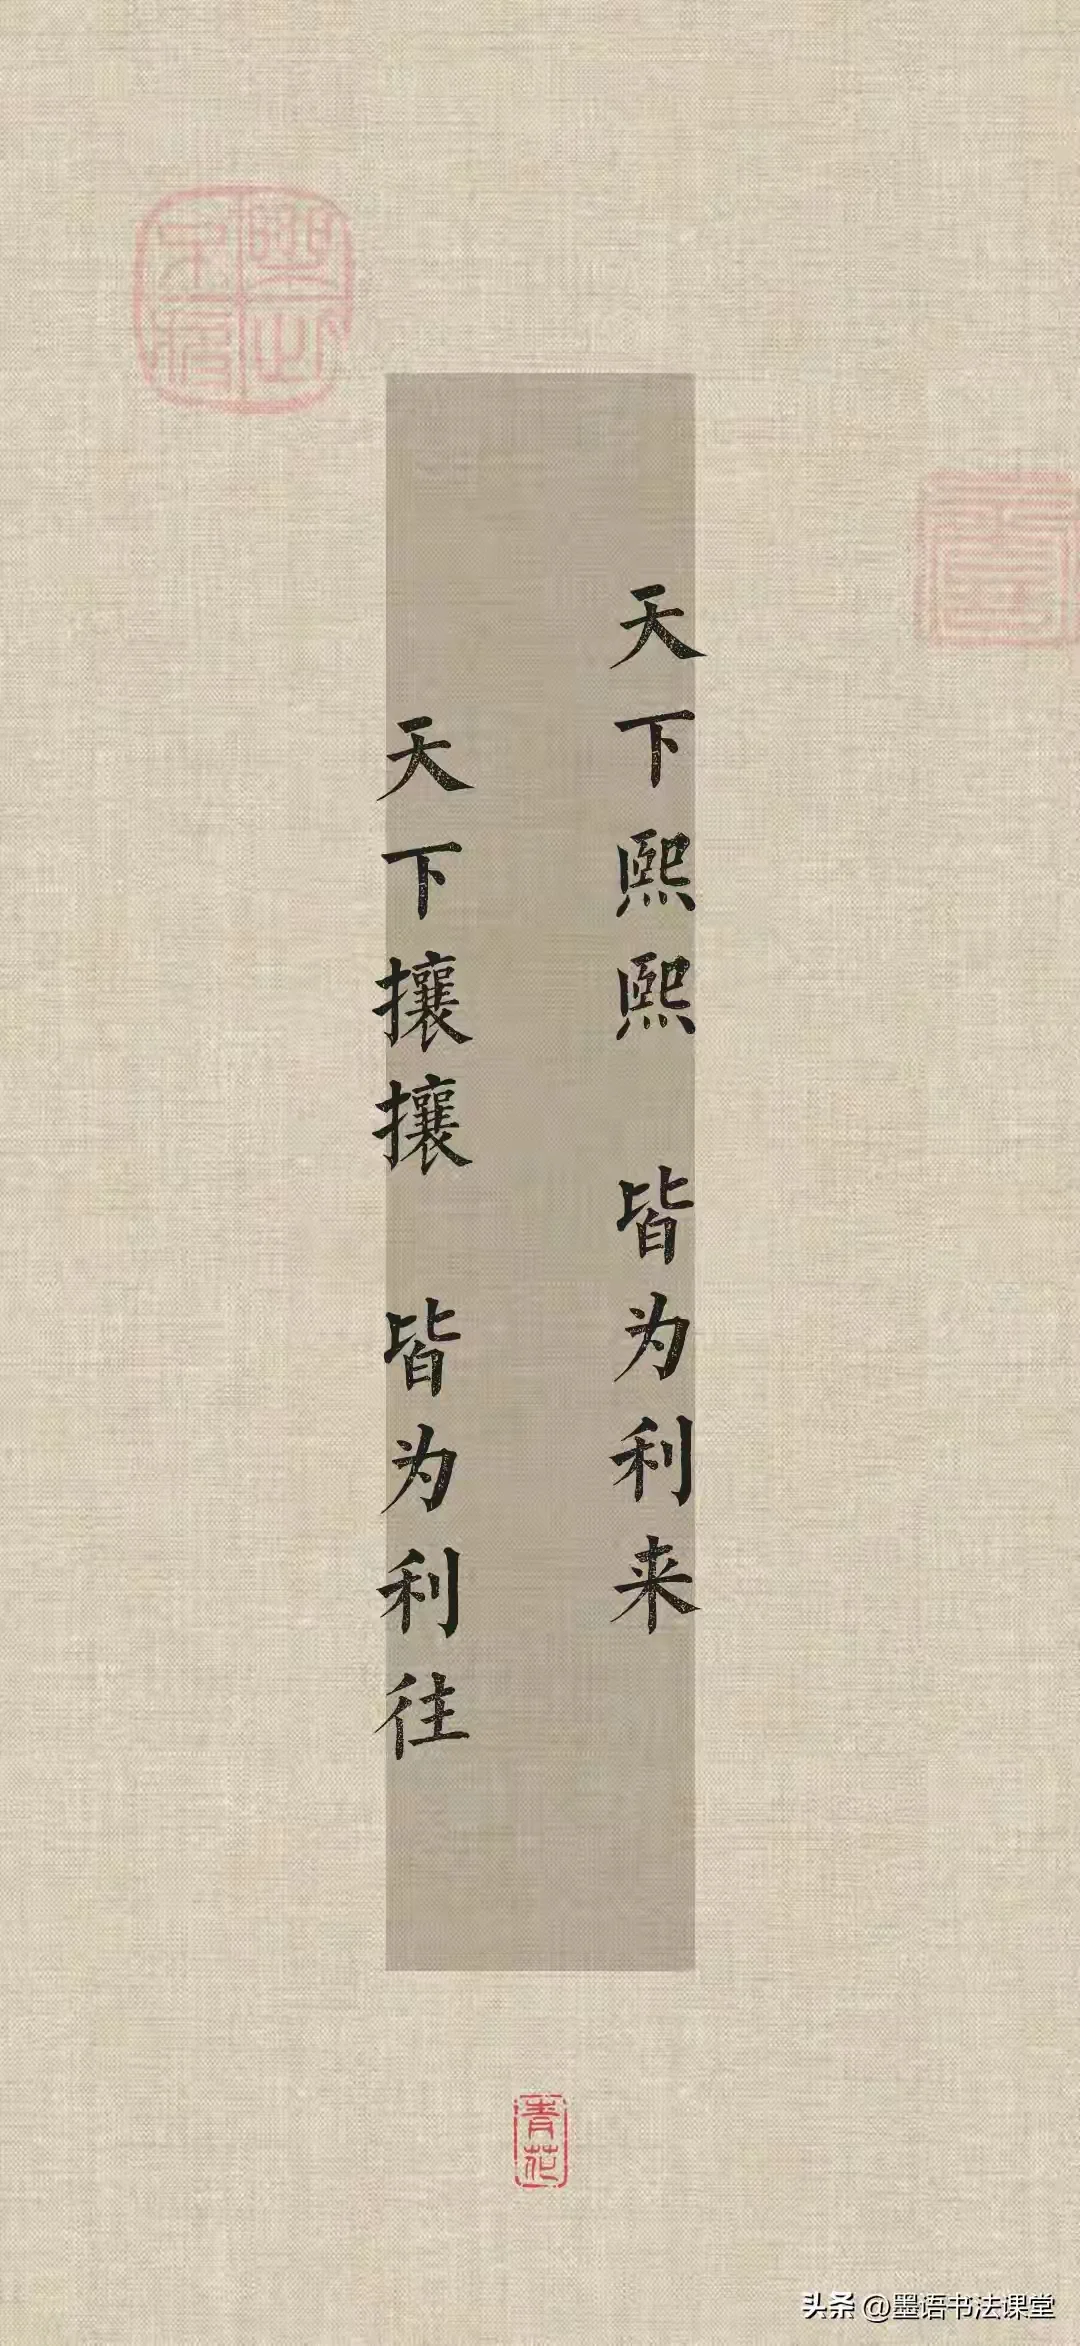 天下熙熙 皆为利来
天下攘攘 皆为利往
青花
头条 @墨语书法课堂